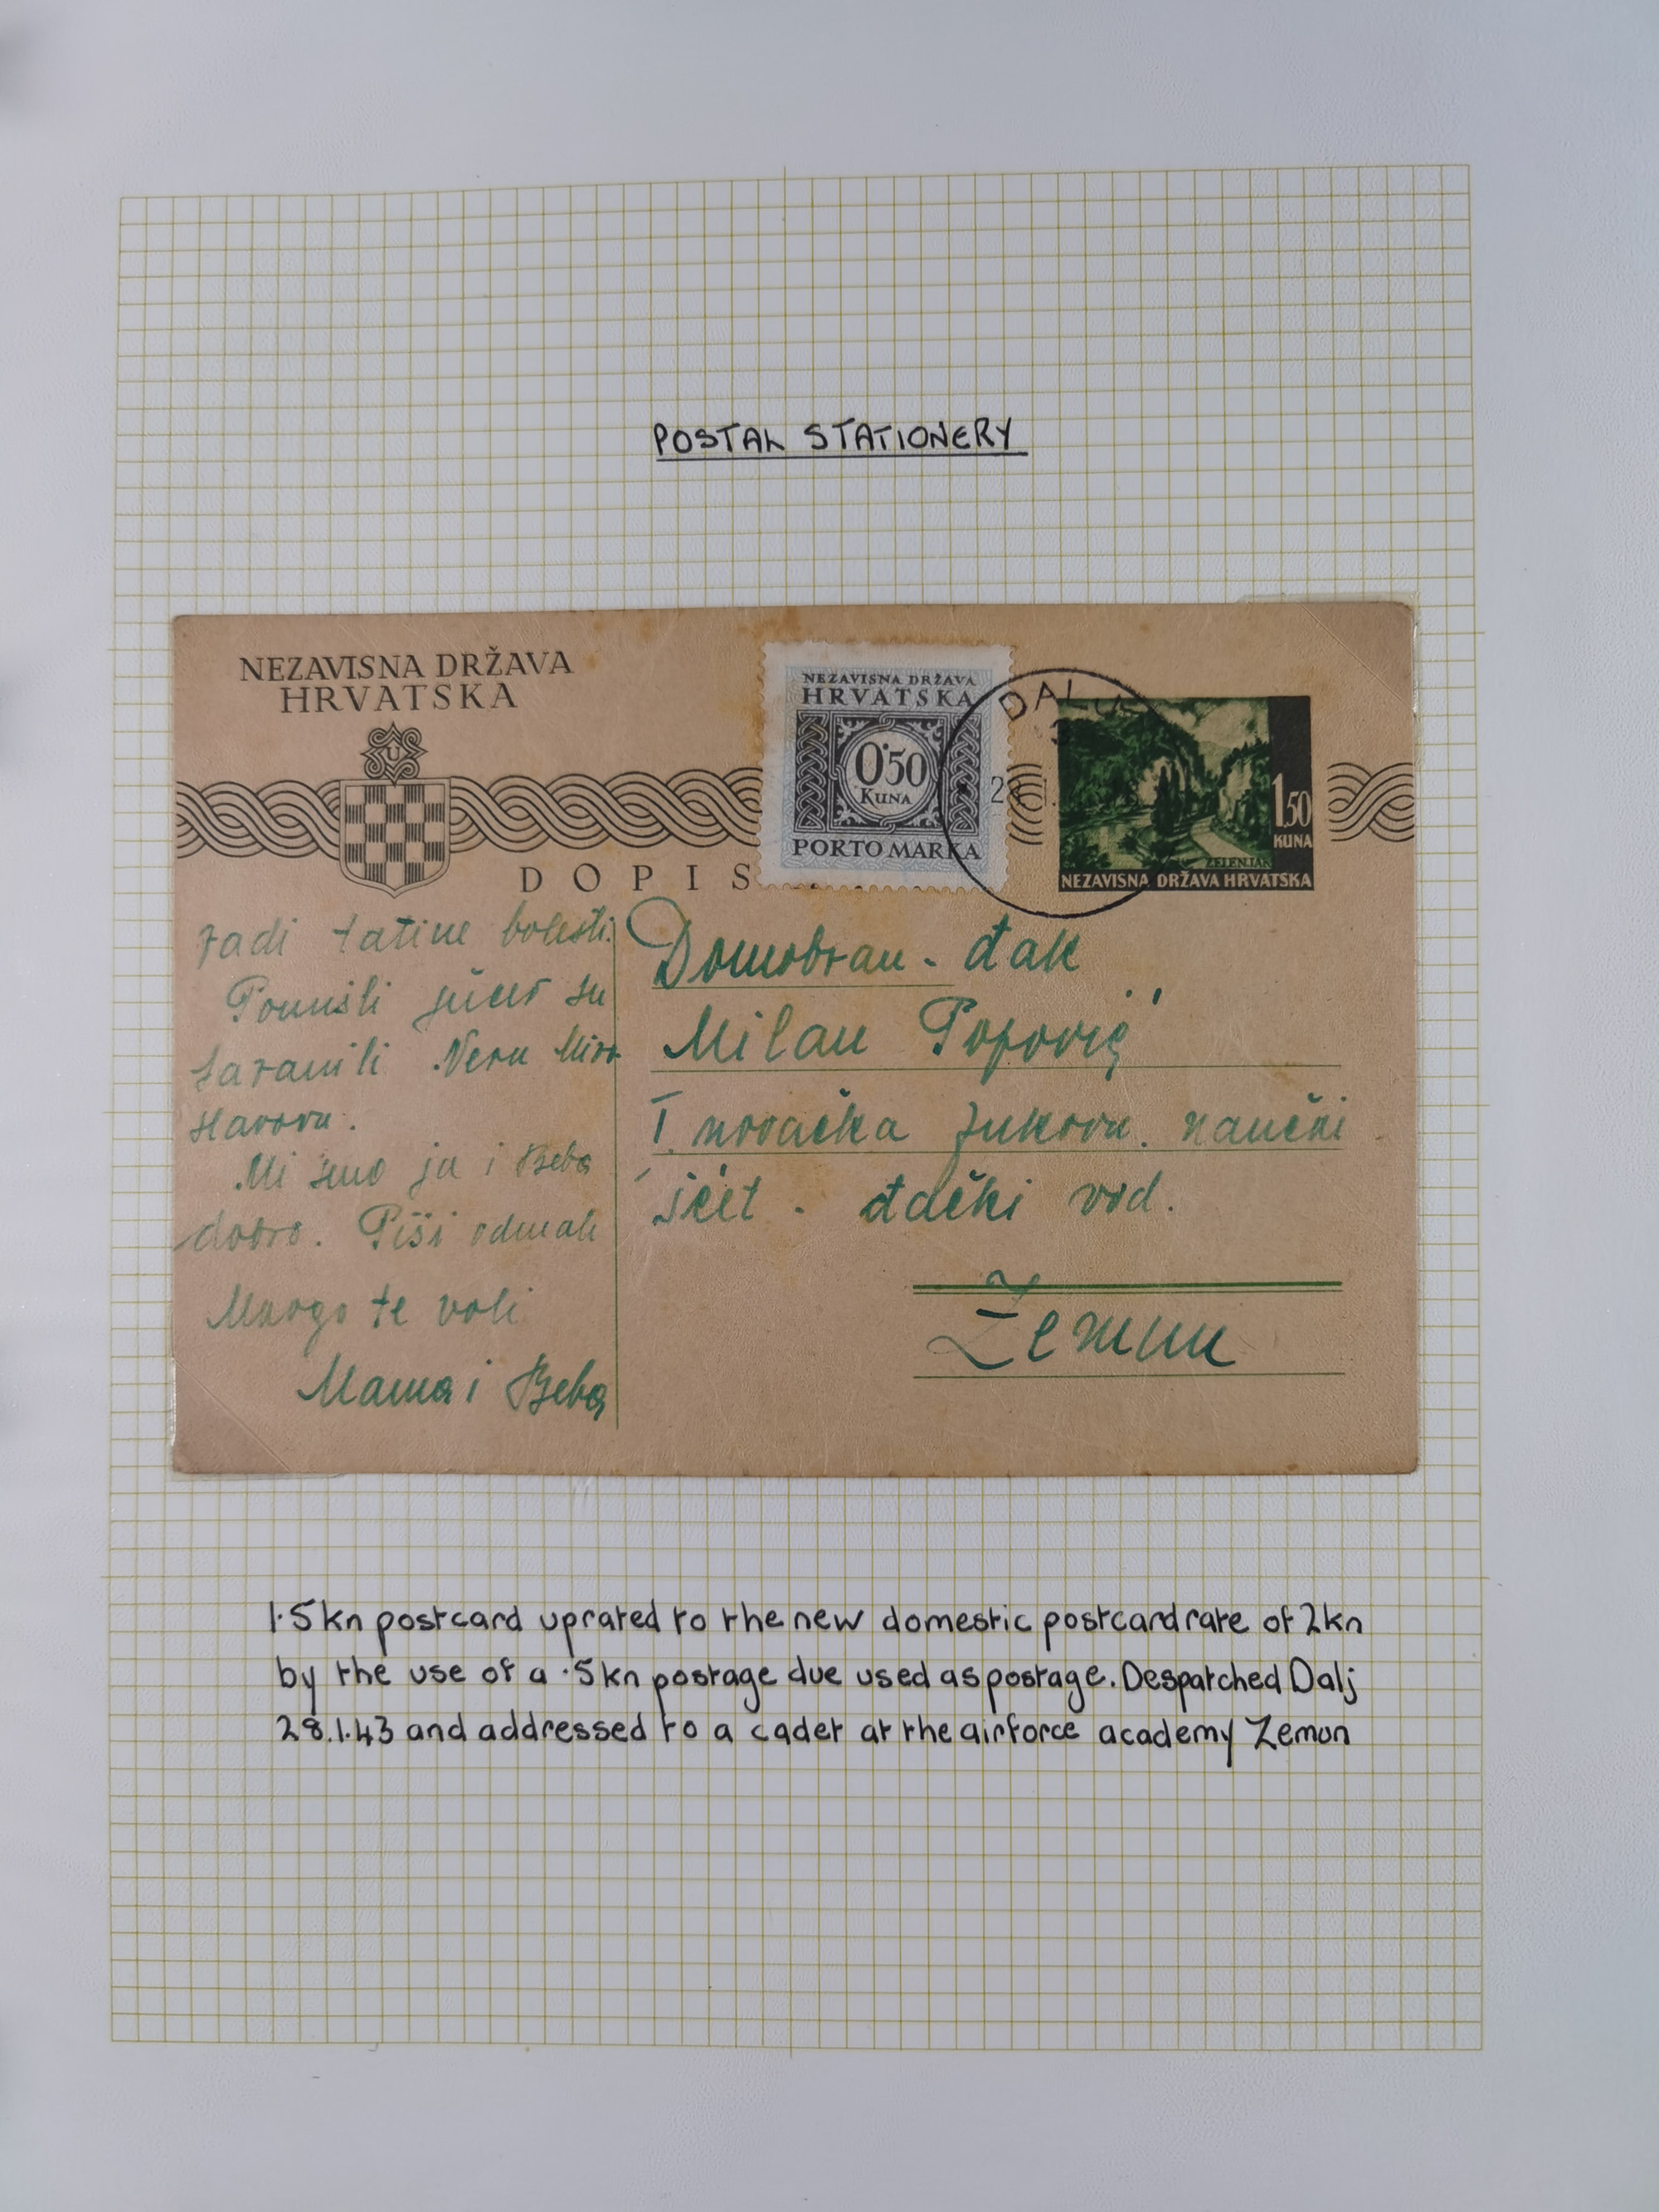 POSTAL STATIONERY
NEZAVISNA DRŽAVA
HRVATSKA
U
DOPIS
NEZAVISNA DRŽAVA
HRVATSKA
0.50
KUNA
PORTO MARKA
DALJ
28.1.
1.50
KUNA
ZELENJAK
NEZAVISNA DRŽAVA HRVATSKA
radi tatine bolesti.
Pomisli jučer su
saranili Veru
Mi smo ja i Beba
dobro. Piši odmah
Mnogo te voli
Mama i Beba
Domobran - đak
Milan Popović
I. novačka zukovn. naučni
đački vod.
Zemun
1.5kn postcard uprated to the new domestic postcard rate of 2kn
by the use of a .5kn postage due used as postage. Despatched Dalj
28.1.43 and addressed to a cadet at the airforce academy Zemun